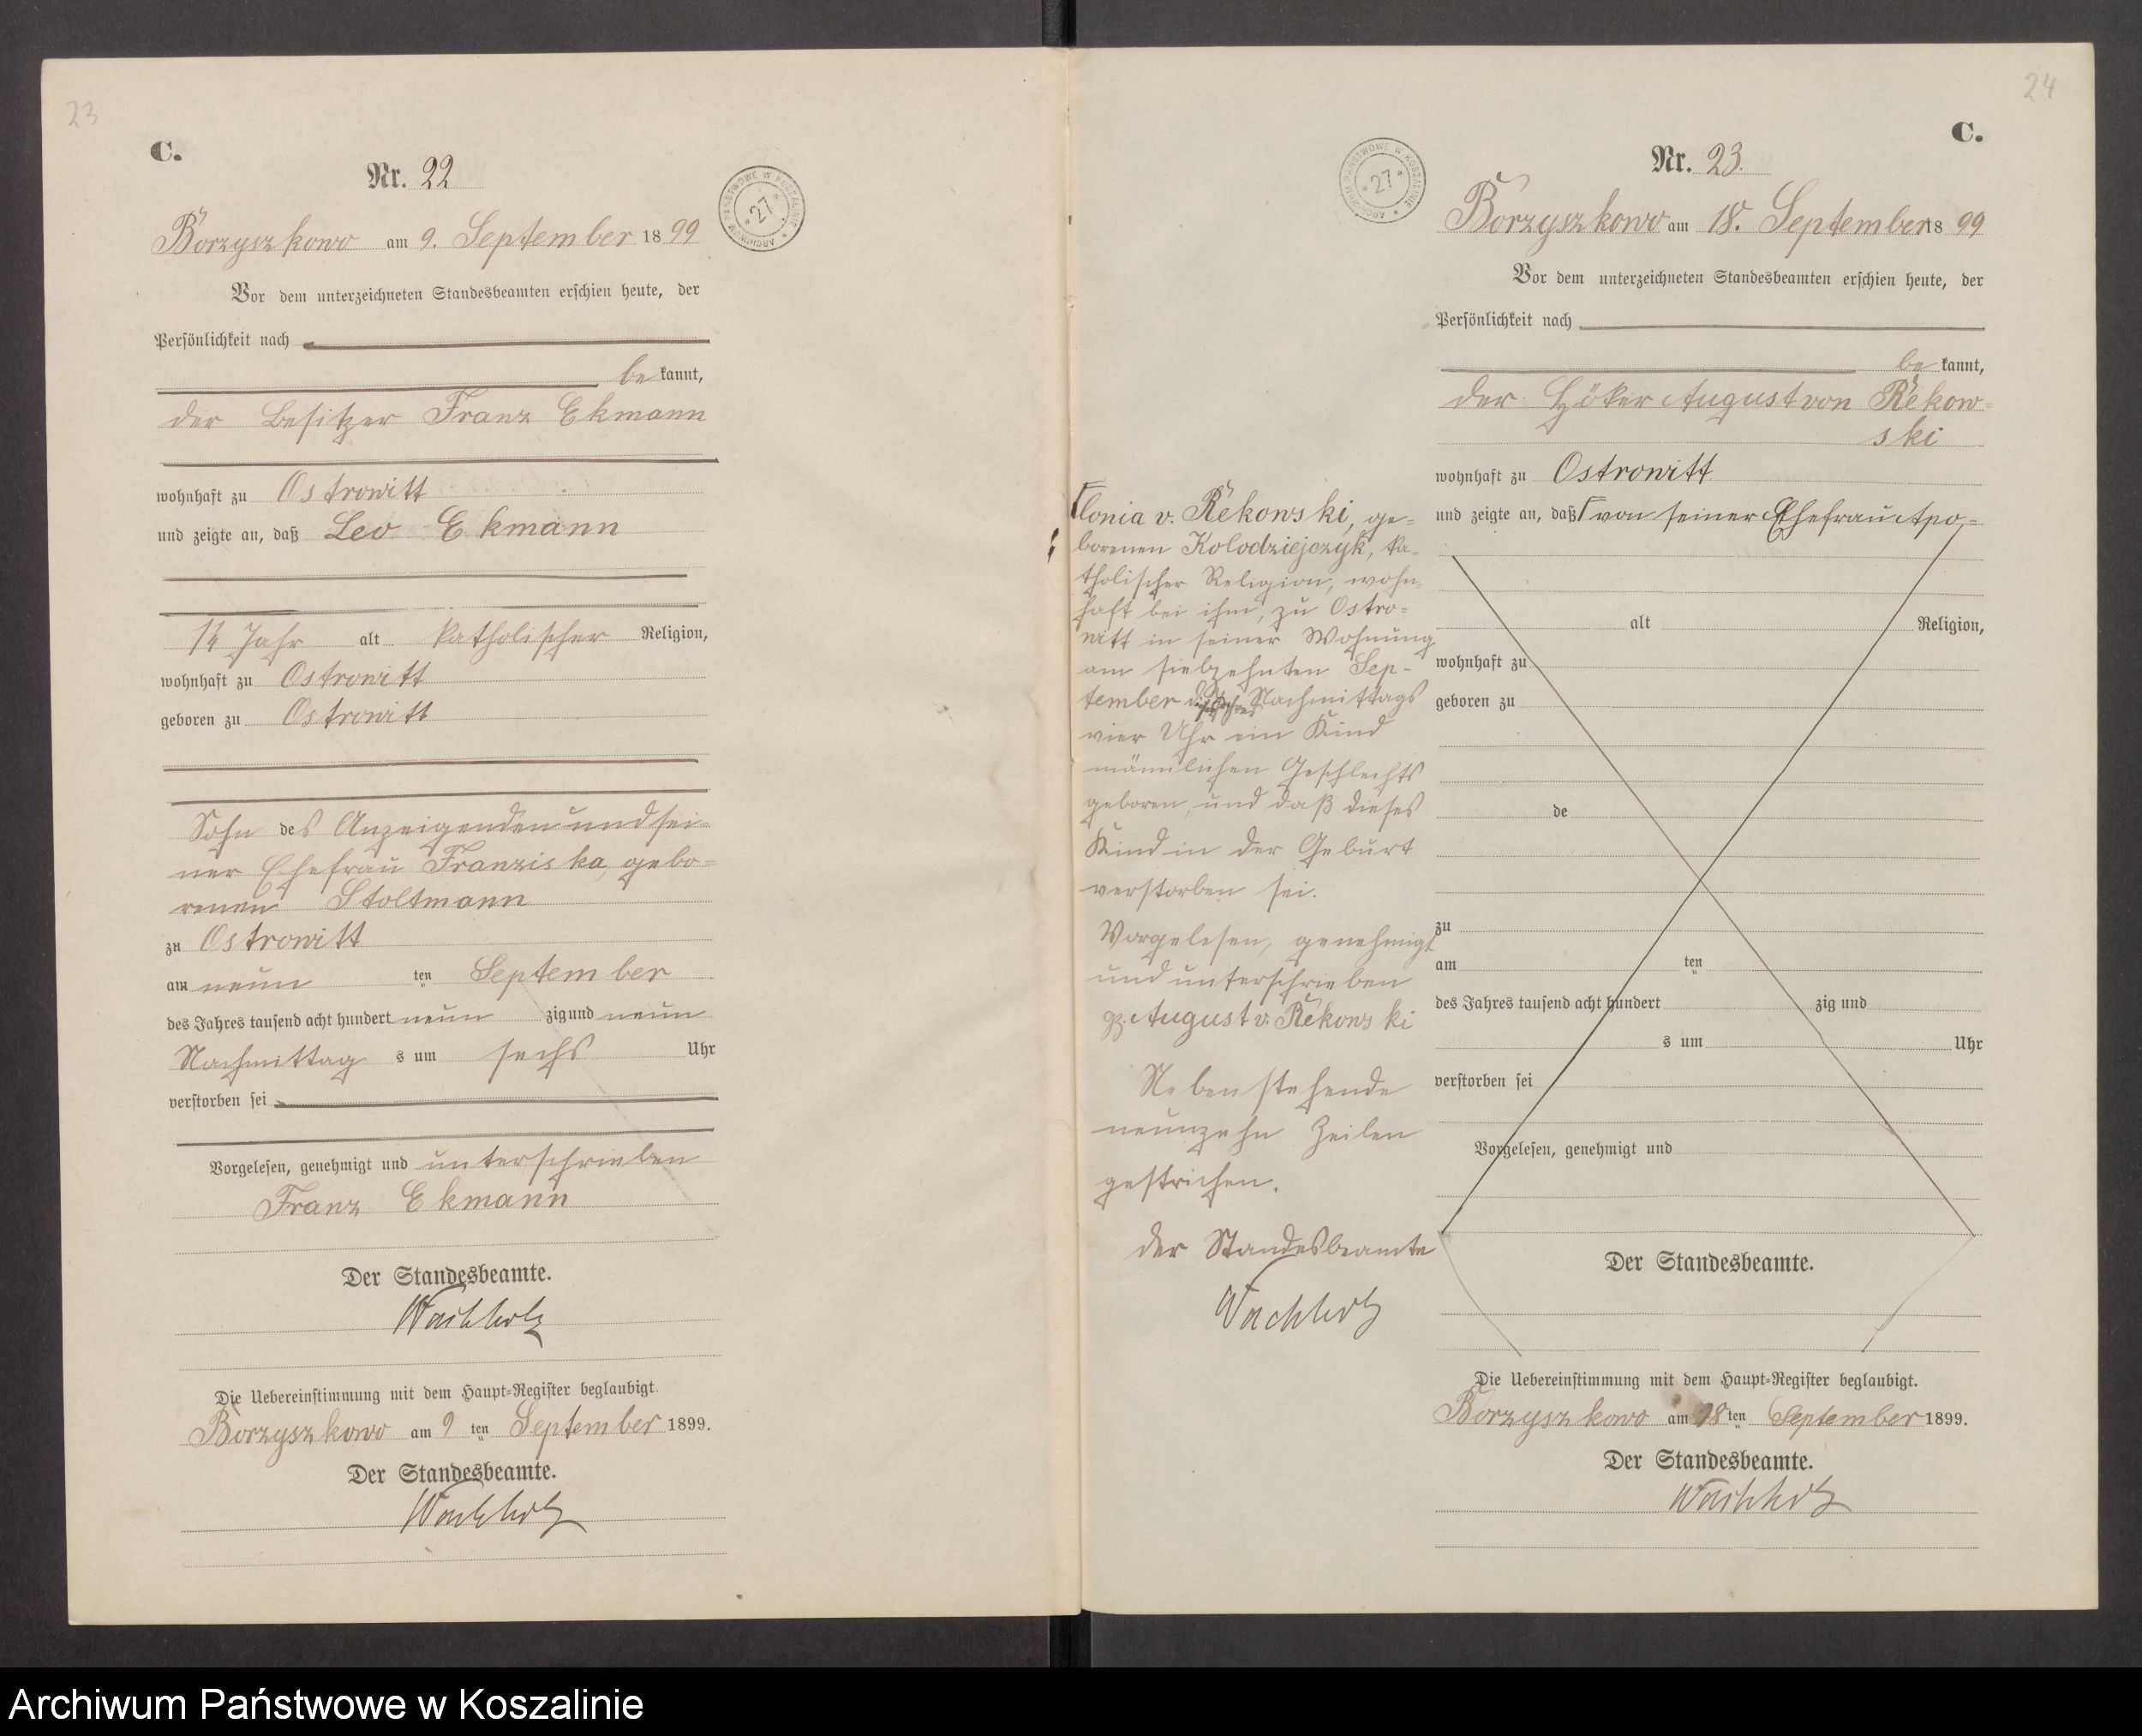 23
C.
Nr. 22
ARCHIWUM PAŃSTWOWE W KOSZALINIE * 27 *
Borzyszkowo am 9. September 1899
Vor dem unterzeichneten Standesbeamten erschien heute, der
Persönlichkeit nach
be kannt,
der Besitzer Franz Ekmann
wohnhaft zu Ostrowitt
und zeigte an, daß Leo Ekmann
Jahr alt katholischer Religion,
wohnhaft zu Ostrowitt
geboren zu Ostrowitt
Sohn des Anzeigenden und sei-
ner Ehefrau Franziska, gebo-
renen Stoltmann
zu Ostrowitt
am neun ten September
des Jahres tausend acht hundert neun zig und neun
Nachmittag s um sechs Uhr
verstorben sei
Vorgelesen, genehmigt und unterschrieben
Franz Ekmann
Der Standesbeamte.
Wachholz
Die Uebereinstimmung mit dem Haupt-Register beglaubigt.
Borzyszkowo am 9 ten September 1899.
Der Standesbeamte.
Wachholz
24
C.
Nr. 23.
ARCHIWUM PAŃSTWOWE W KOSZALINIE * 27 *
Borzyszkowo am 18. September 1899
Vor dem unterzeichneten Standesbeamten erschien heute, der
Persönlichkeit nach
be kannt,
der Höker August von Rekow-
ski
wohnhaft zu Ostrowitt
und zeigte an, daß von seiner Ehefrau Apo-
lonia v. Rekowski, ge-
borenen Kolodziejczyk, ka-
tholischer Religion, wohn-
haft bei ihm, zu Ostro-
witt in seiner Wohnung
am siebzehnten Sep-
tember Nachmittags
vier Uhr ein Kind
männlichen Geschlechts
geboren, und daß dieses
Kind in der Geburt
verstorben sei.
Vorgelesen, genehmigt
und unterschrieben
gz. August v. Rekowski
Nebenstehende
neunzehn Zeilen
gestrichen.
der Standesbeamte
Wachholz
alt Religion,
wohnhaft zu
geboren zu
de
zu
am ten
des Jahres tausend acht hundert zig und
s um Uhr
verstorben sei
Vorgelesen, genehmigt und
Der Standesbeamte.
Die Uebereinstimmung mit dem Haupt-Register beglaubigt.
Borzyszkowo am 18 ten September 1899.
Der Standesbeamte.
Wachholz
Archiwum Państwowe w Koszalinie